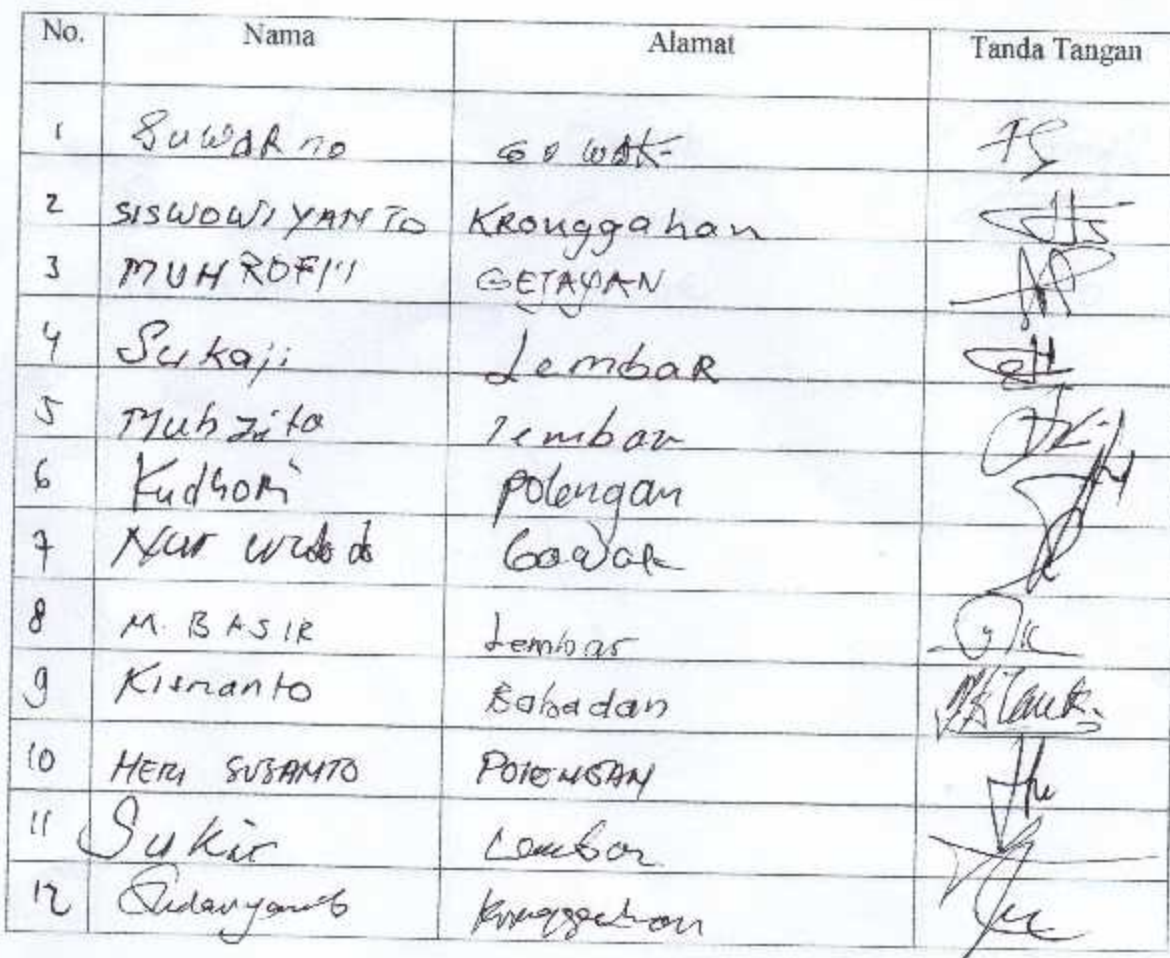 No. Nama Alamat Tanda Tangan
1 SuwaRno GOWAK
2 SISWOWIYANTO KRonggahan
3 MUH ROFI'I GETAYAN
4 Sukaji LembaR
5 Muh Lembar
6 KudhoRi Polengan
7 Nur widodo Gowak
8 M. BASIR Lembar
9 Kismanto Babadan
10 HERI SUSANTO POLENGAN
11 Sukir Lembar
12 Kronggahan